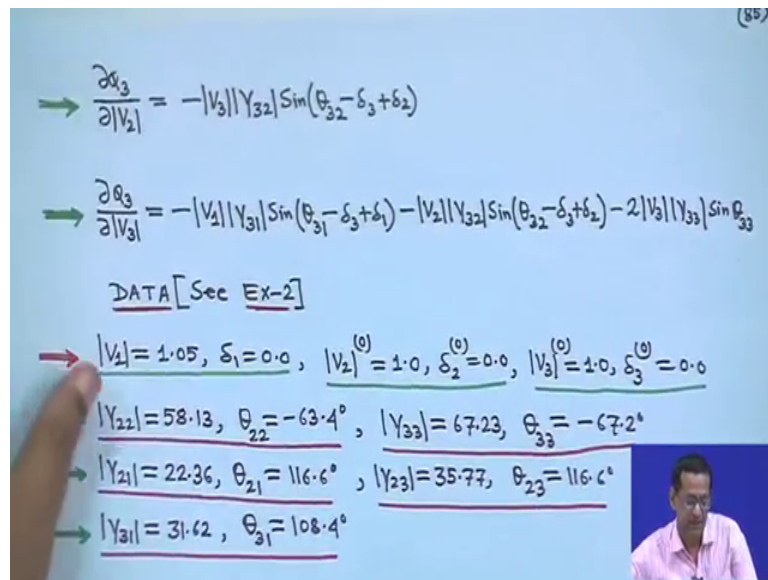 (85)
→ ∂Q3/∂|V2| = -|V3||Y32| Sin(θ32-δ3+δ2)
→ ∂Q3/∂|V3| = -|V1||Y31| Sin(θ31-δ3+δ1) - |V2||Y32| Sin(θ32-δ3+δ2) - 2|V3||Y33| Sin θ33
DATA [See Ex-2]
→ |V1| = 1.05, δ1 = 0.0, |V2|^(0) = 1.0, δ2^(0) = 0.0, |V3|^(0) = 1.0, δ3^(0) = 0.0
|Y22| = 58.13, θ22 = -63.4°, |Y33| = 67.23, θ33 = -67.2°
→ |Y21| = 22.36, θ21 = 116.6°, |Y23| = 35.77, θ23 = 116.6°
→ |Y31| = 31.62, θ31 = 108.4°